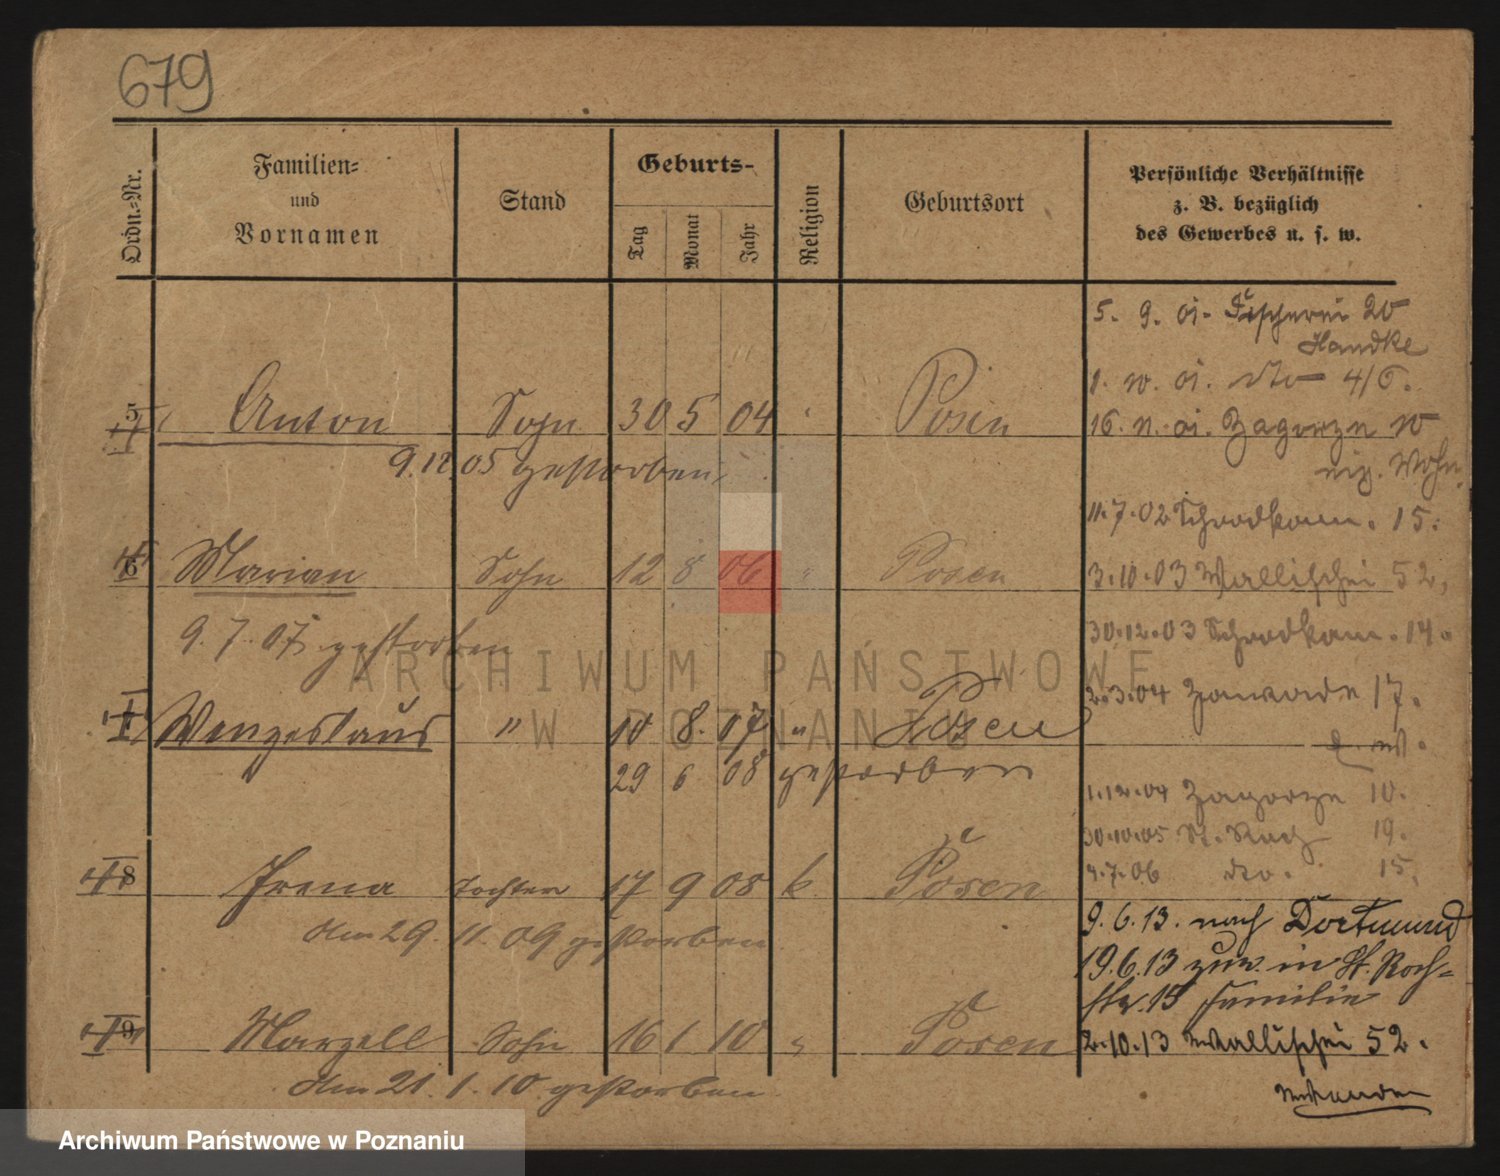 679
Ordn.-Nr.
Familien-
und
Vornamen
Stand
Geburts-
Tag
Monat
Jahr
Religion
Geburtsort
Persönliche Verhältnisse
z. B. bezüglich
des Gewerbes u. s. w.
5. 9. 01. Fischerei 20
Handke
1. 10. 01. dto 4/6.
5 Anton Sohn 30 5 04 " Posen
16. 11. 01. Zagorze 10
eig. Wohn.
9.12.05 gestorben
11.7.02 Schrodkam. 15.
6 Marian Sohn 12 8 06 " Posen
3.10.03 Wallischei 52,
9.7.07 gestorben
30.12.03 Schrodkam. 14.
ARCHIWUM PAŃSTWOWE
W POZNANIU
Wenzeslaus " 10 8. 07 " Posen
2.3.04 Zawade 17.
29 6 08 gestorben
1.12.04 Zagorze 10.
30.10.05 St. Roch 19.
4.7.06 dto. 15,
8 Irena Tochter 17 9 08 k. Posen
9.6.13. nach Dortmund
den 29. 11. 09 gestorben
19.6.13 zur. in St. Roch-
str. 15 Familie
9 Marzell Sohn 16 1 10 " Posen
2.10.13 Wallischei 52.
den 21. 1. 10. gestorben
Archiwum Państwowe w Poznaniu